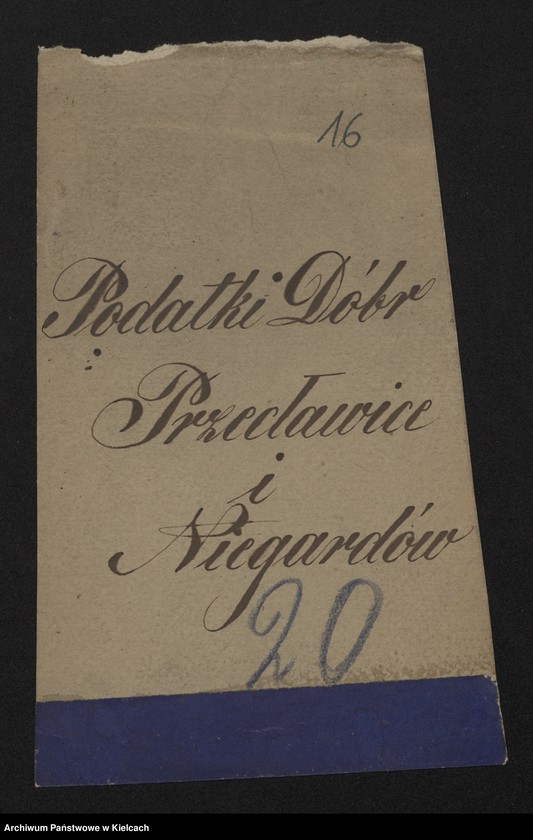 16
Podatki Dóbr
Przecławice
i
Niegardów
20
Archiwum Państwowe w Kielcach